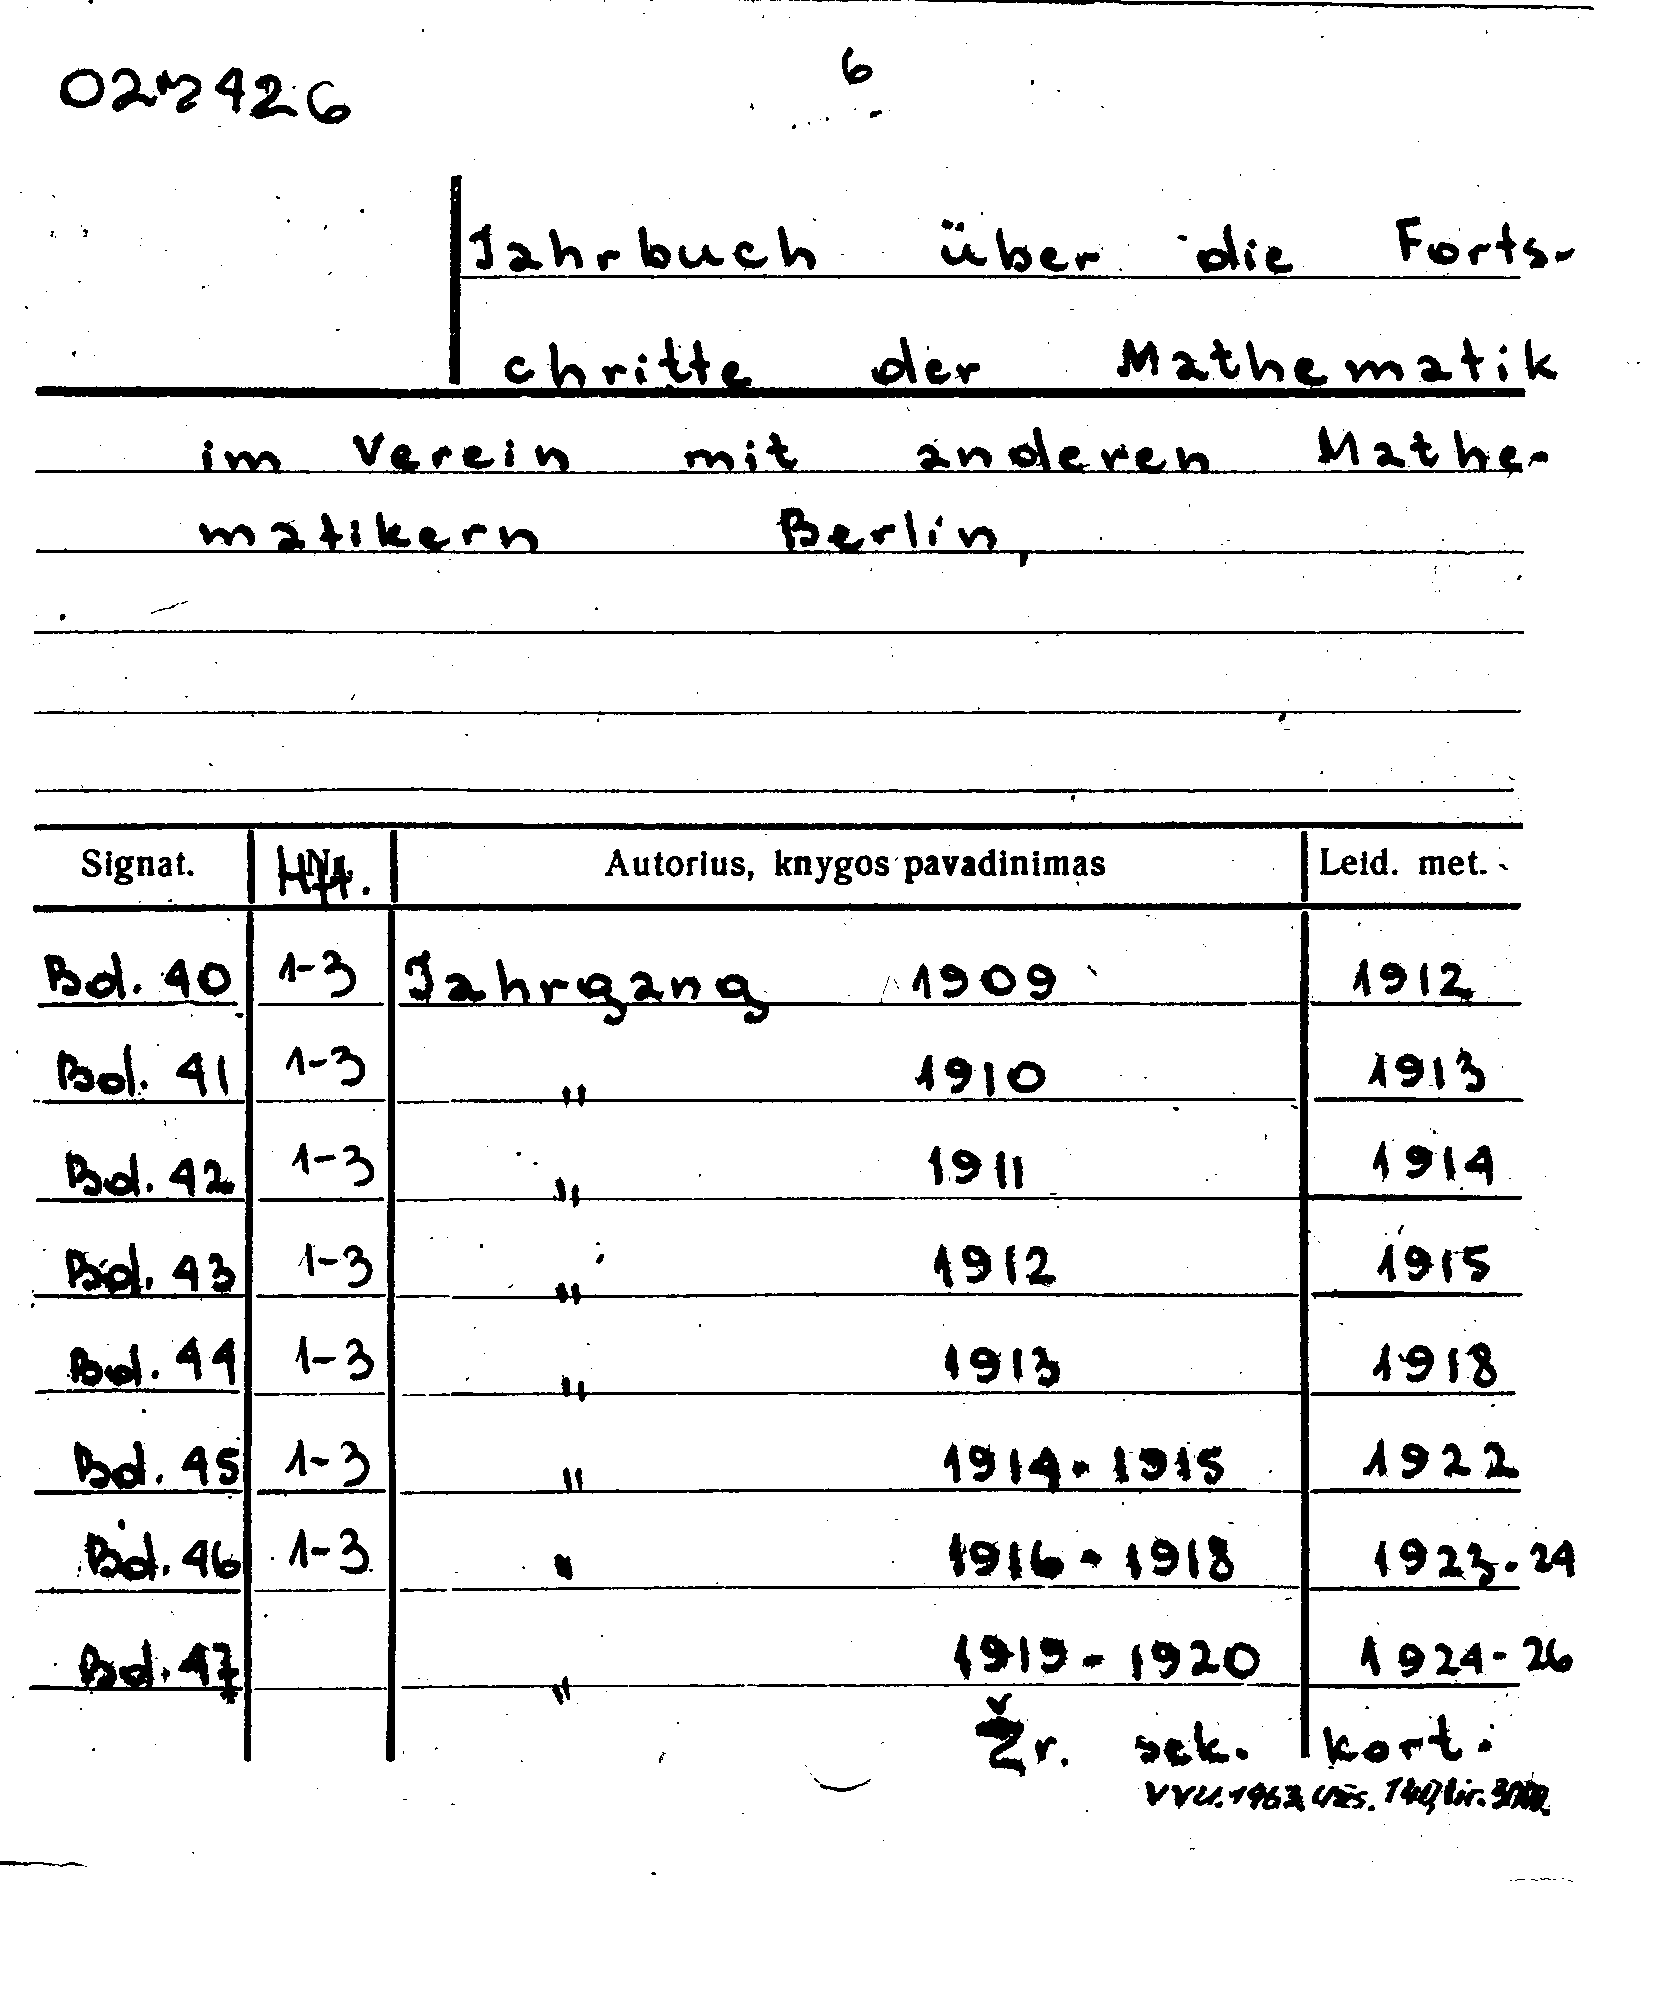 027426 6
Jahrbuch über die Forts-
chritte der Mathematik
im Verein mit anderen Mathe-
matikern Berlin,
Signat. Hft. Autorius, knygos pavadinimas Leid. met.
Bd. 40 1-3 Jahrgang 1909 1912
Bd. 41 1-3 " 1910 1913
Bd. 42 1-3 " 1911 1914
Bd. 43 1-3 " 1912 1915
Bd. 44 1-3 " 1913 1918
Bd. 45 1-3 " 1914-1915 1922
Bd. 46 1-3 " 1916-1918 1923-24
Bd. 47 " 1919-1920 1924-26
Žr. sek. kort.
VVU. 1963 Užs. 140, tir.